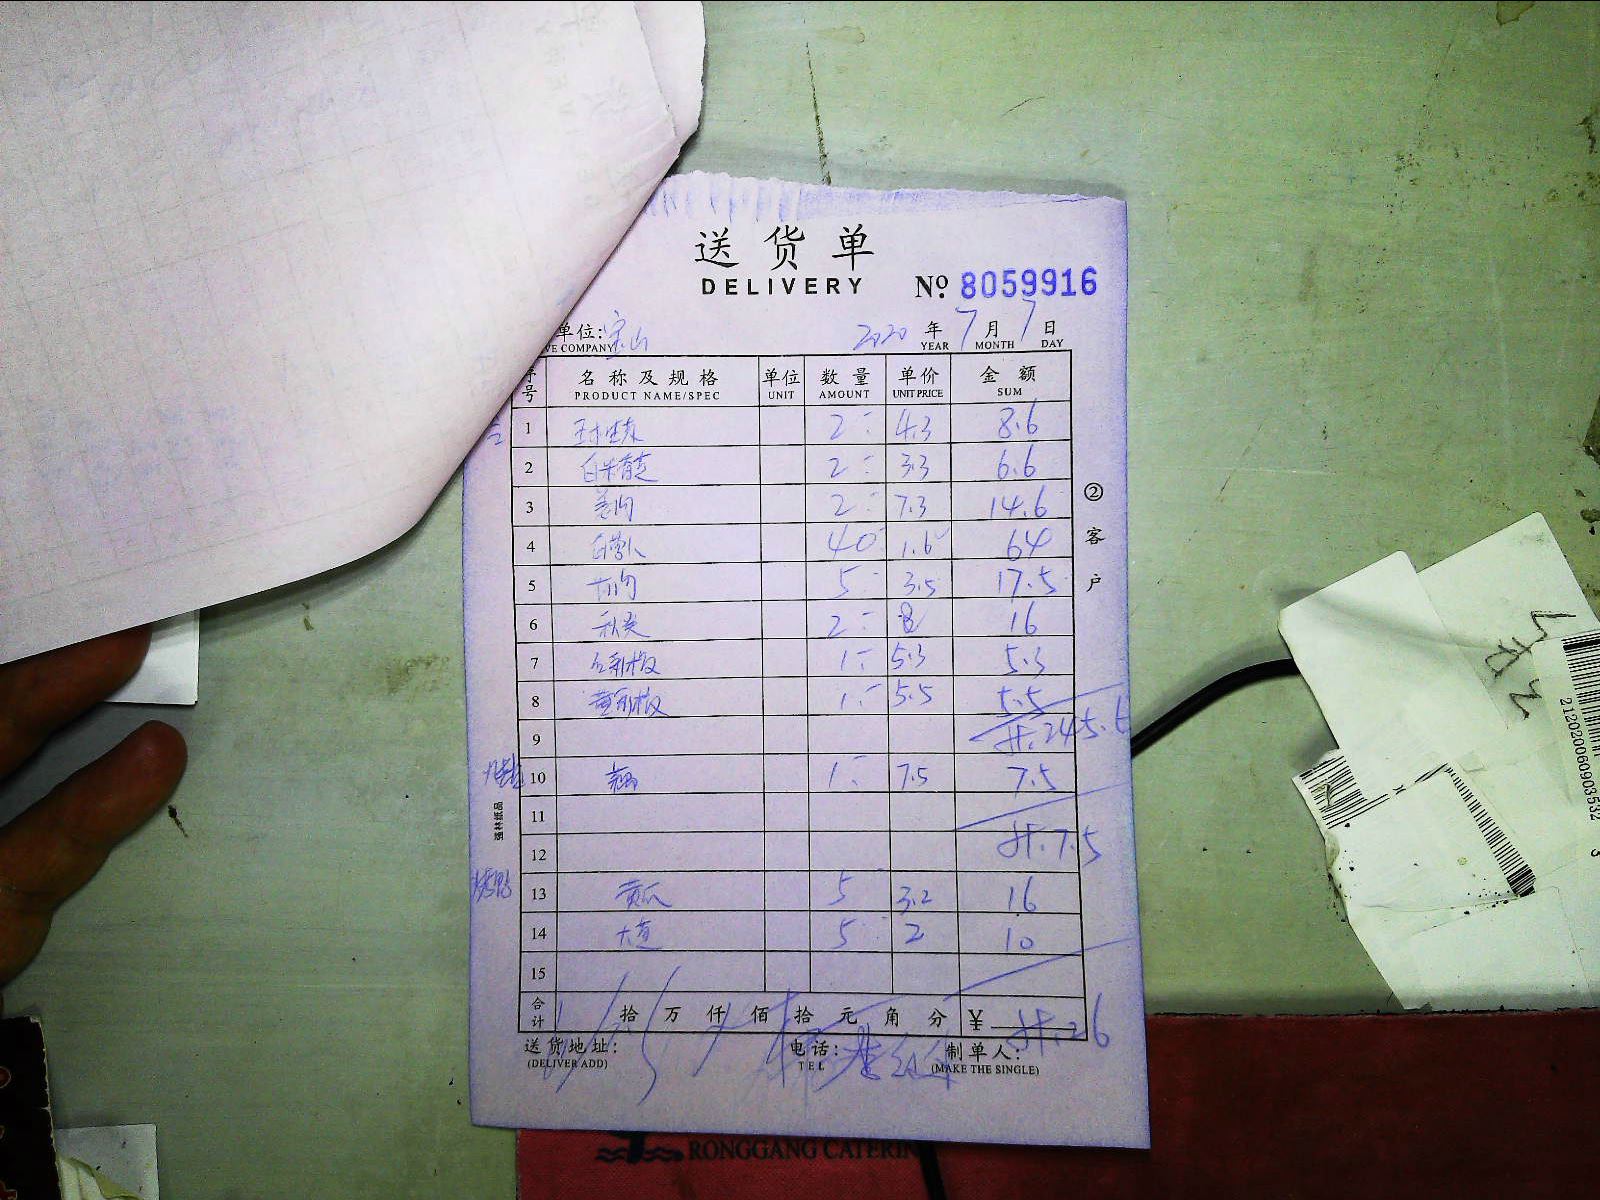 送货单
DELIVERY
No 8059916
单位: 宝山 2020 年 7 月 7 日
VE COMPANY YEAR MONTH DAY
序号 名称及规格 单位 数量 单价 金额
PRODUCT NAME/SPEC UNIT AMOUNT UNIT PRICE SUM
1 2 4.3 8.6
2 2 3.3 6.6
3 2 7.3 14.6
4 40 1.6 64
5 5 3.5 17.5
6 秋葵 2 8 16
7 1 5.3 5.3
8 1 5.5 5.5
9 计.245.
10 1 7.5 7.5
11
12 计.7.5
13 黄瓜 5 3.2 16
14 大葱 5 2 10
15
合计 拾 万 仟 佰 拾 元 角 分 ¥ 计.26
送货地址: 电话: 制单人:
(DELIVER ADD) TEL (MAKE THE SINGLE)
②客户
强林纸品
RONGGANG CATERIN
2120200609035323